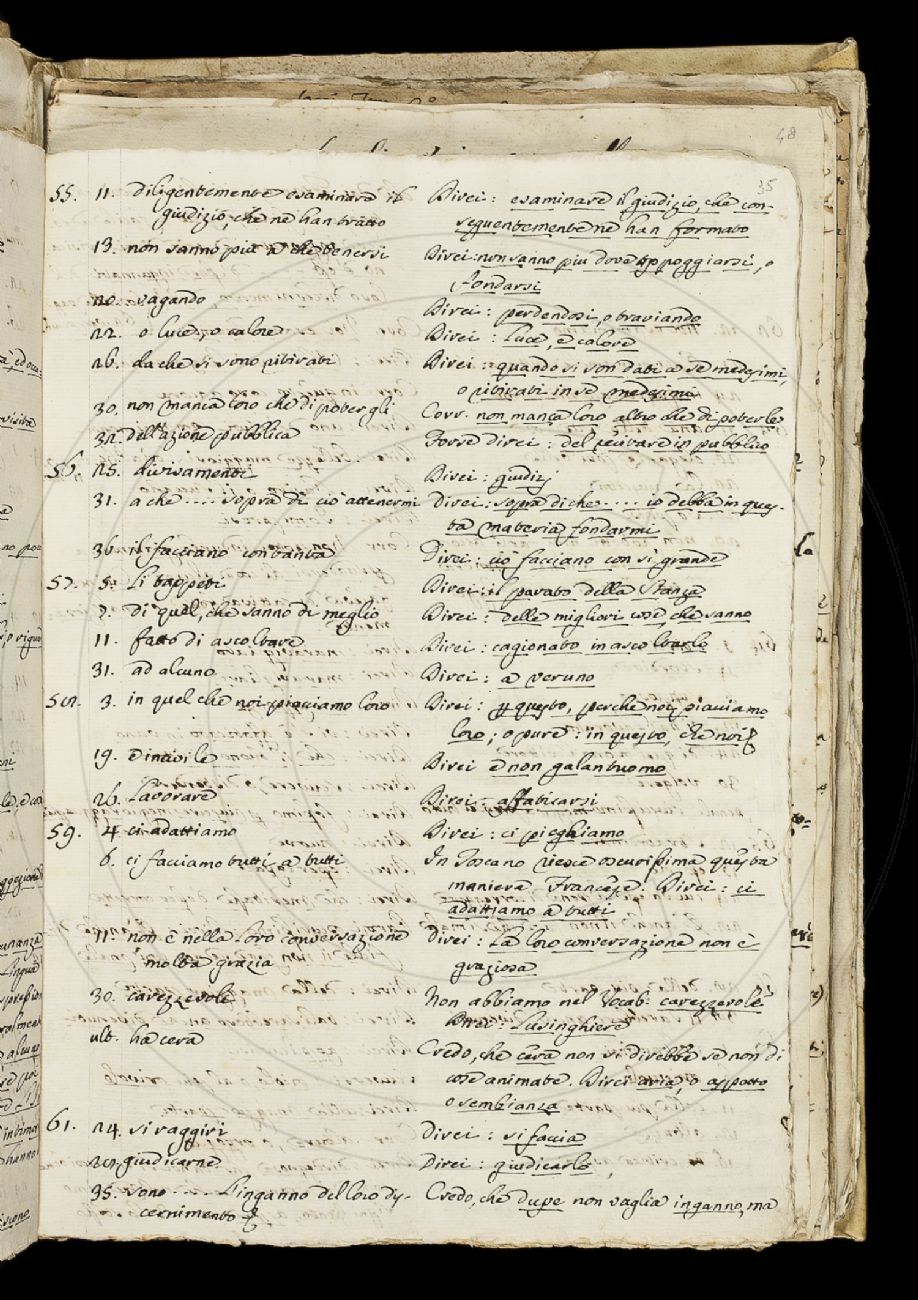 48
35
55. 11. diligentemente esaminare il Direi: esaminare il giudizio, che con-
giudizio, che ne han tratto seguentemente ne han formato
13. non sanno più a che tenersi Direi: non sanno piu dove appoggiarsi, o
fondarsi
20. vagando Direi: perdendosi, o traviando
22. o luce, o calore Direi: luce, e calore
26. da che si sono ritirati Direi: quando si son dati a se medesimi,
o ritirati in se medesimi
30. non manca loro che di poter gli Corr. non manca loro altro che di poterle
32. dell'azione pubblica Forse direi: del recitare in pubblico
56. 25. divisamenti Direi: giudizj
31. a che .... sopra di ciò attenermi Direi: sopra di che .... io debba in ques-
ta materia fondarmi
36. il facciano con tanta Direi: ciò facciano con si grande
57. 5. Li tappeti Direi: il parato della Stanza
7. Di quel, che sanno di meglio Direi: delle migliori cose, che sanno
11. fatto di ascoltare Direi: cagionato in ascoltarlo
31. ad alcuno Direi: a veruno
58. 3. in quel che noi piacciamo loro Direi: per questo, perche noi piacciamo
loro; o pure: in questo, che noi
19. è incivile Direi è non galantuomo
26. Lavorare Direi: affaticarsi
59. 4 ci adattiamo Direi: ci pieghiamo
6. ci facciamo tutti a tutti In Toscano riesce oscurissima questa
maniera Francese: Direi: ci
adattiamo a tutti
11. non è nella loro conversazione Direi: La loro conversazione non è
molta grazia graziosa
30. carezzevoli Non abbiamo nel Vocab. carezzevole
Direi: Lusinghiere
ult. ha cera Credo, che cera non si direbbe se non di
cose animate. Direi aria, o aspetto
o sembianza
61. 24. si raggiri Direi: si faccia
28. giudicarne Direi: giudicarlo
35. sono .... L'inganno del loro dis- Credo, che dupe non vaglia inganno, ma
cernimento